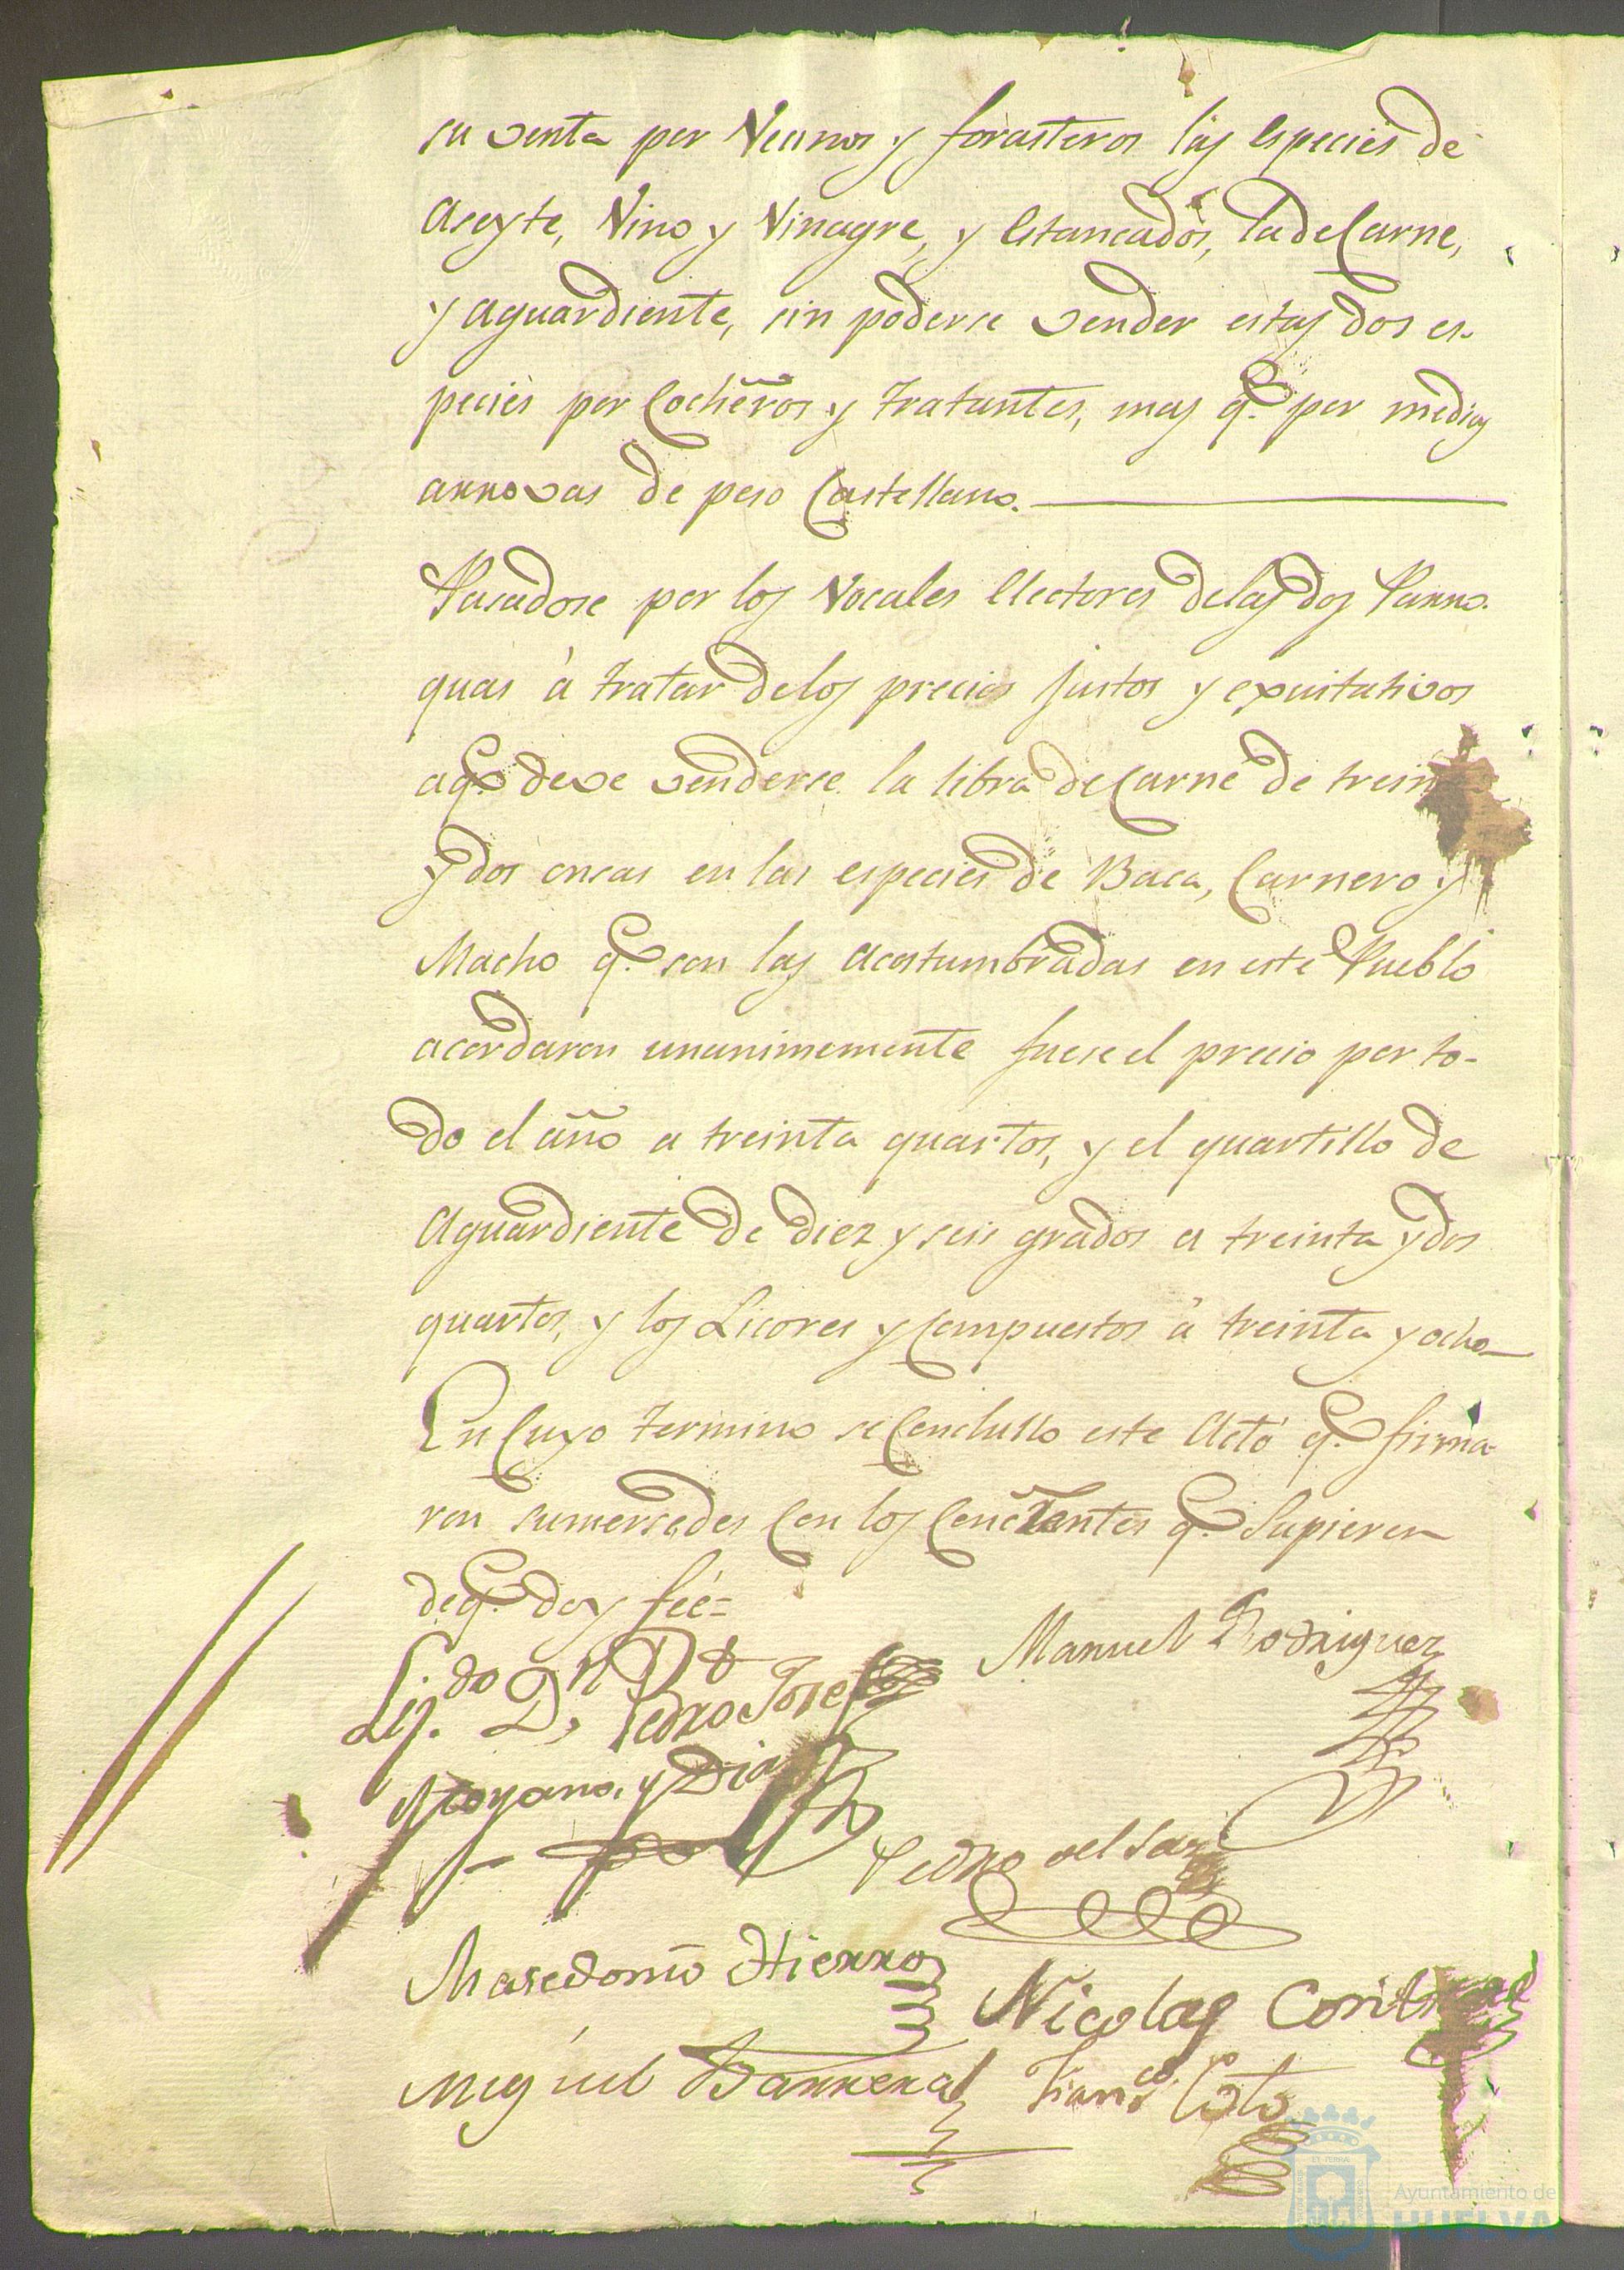 su venta por Vecinos y forasteros las especies de
Aseyte, Vino y Vinagre, y Estancados, la de Carne,
y aguardiente, sin poderse vender estas dos es-
pecies por Cocheros y tratantes, mas q.e por medias
arrovas de peso Castellano.
Pasadose por los Vocales Electores de las dos Parro-
quias á tratar de los precios justos y equitativos
a q.e deve venderse la libra de Carne de trein
y dos onsas en las especies de Baca, Carnero y
Macho q.e son las acostumbradas en este Pueblo
acordaron unanimemente fuese el precio por to-
do el año a treinta quartos, y el quartillo de
Aguardiente de diez y seis grados a treinta y dos
quartos, y los Licores y Compuestos á treinta y ocho
En Cuyo termino se Conclullo este Acto q.e firma
ron sumersedes Con los Concurrentes q.e Supieron
de q.e doy feé =
Liz.do D.n Pedro Josef
Moyano, y Dias
Manuel Rodriguez
Pedro del Saz
Masedonio Hierro
Nicolas
Miguel Barrera
Fran.co Coto
Ayuntamiento de
HUELVA